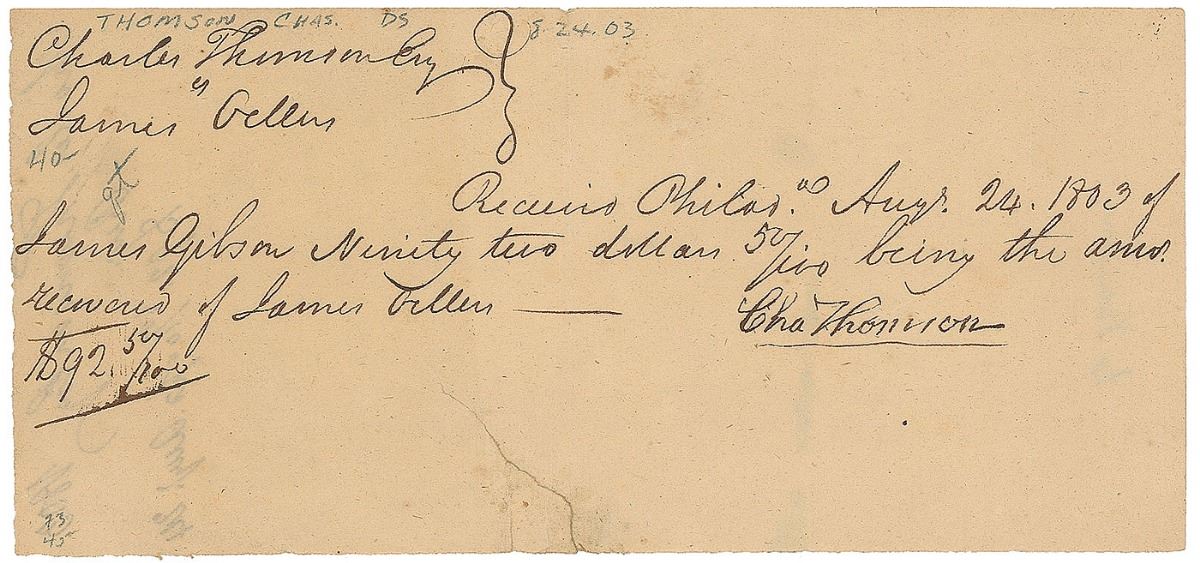 THOMSON CHAS. DS 8.24.03
Charles Thomson Esq
vs
James Oellers
40
Received Philad.a Augt. 24. 1803 of
James Gibson Ninety two dollars 50/100 being the amo.
recovered of James Oellers
Cha Thomson
$92 50/100
73
45